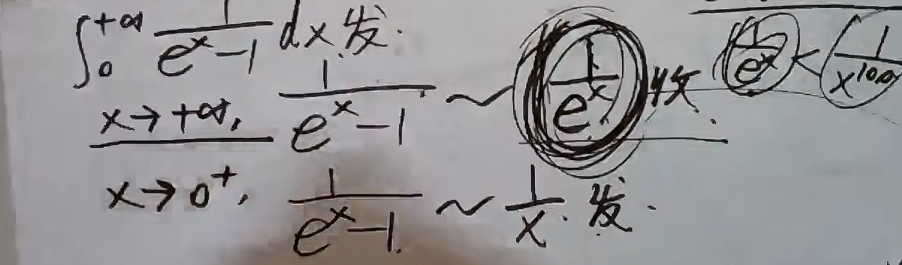 ∫₀^{+∞} 1/(e^x−1) dx 发.
x→+∞, 1/(e^x−1) ~ 1/e^x 收. 1/e^x < 1/x^100
x→0⁺, 1/(e^x−1) ~ 1/x. 发.